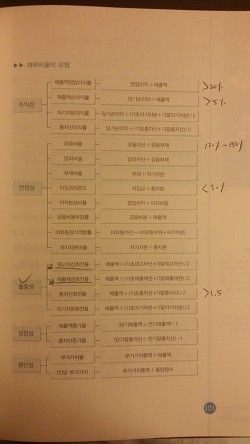 ▶▶ 재무비율의 유형
수익성
매출액영업이익률 영업이익 ÷ 매출액 >20%
매출액순이익률 당기순이익 ÷ 매출액 >5%
자기자본이익률 당기순이익 ÷ (기초자기자본+기말자기자본)/2
총자산이익률 당기순이익 ÷ (기초총자산+기말총자산)/2
안정성
유동비율 유동자산 ÷ 유동부채
당좌비율 당좌자산 ÷ 유동부채
부채비율 부채 ÷ 자기자본
차입금의존도 차입금 ÷ 총자본 <30%
이자보상비율 영업이익 ÷ 이자비용
금융비용부담률 금융비용 ÷ 매출액
비유동장기적합률 비유동자산 ÷ (비유동부채+자기자본)
자기자본비율 자기자본 ÷ 총자본
활동성
재고자산회전율 매출액 ÷ (기초재고자산+기말재고자산)/2
매출채권회전율 매출액 ÷ (기초매출채권+기말매출채권)/2
총자산회전율 매출액 ÷ (기초총자산+기말총자산)/2 >1.5
자기자본회전율 매출액 ÷ (기초자기자본+기말자기자본)/2
성장성
매출액증가율 (당기매출액 ÷ 전기매출액)-1
총자산증가율 (당기말총자산 ÷ 전기말총자산)-1
생산성
부가가치율 부가가치 ÷ 매출액
1인당 부가가치 부가가치 ÷ 종업원수